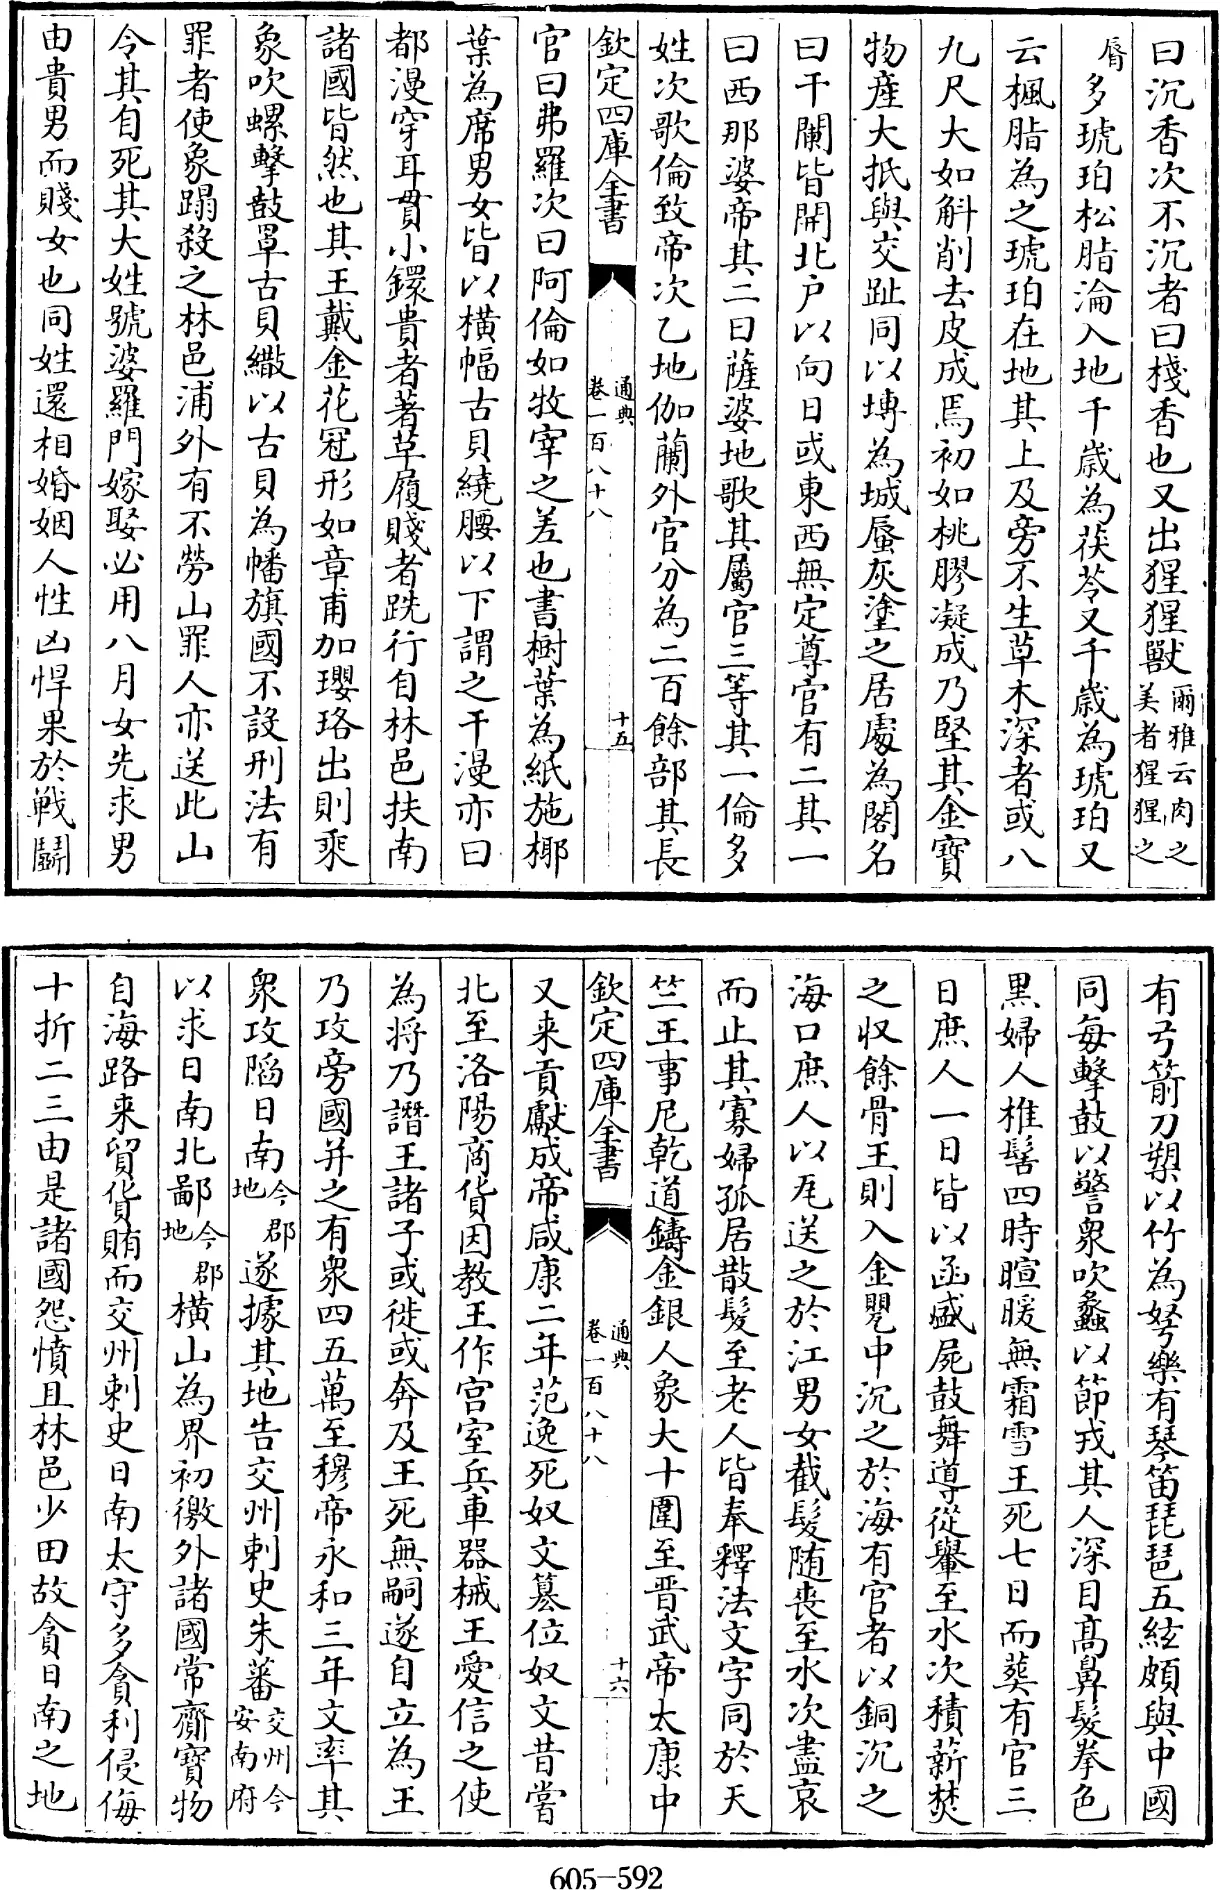 曰沉香次不沉者曰棧香也又出猩猩獸爾雅云肉之美者猩猩之
脣多琥珀松脂淪入地千歲為茯苓又千歲為琥珀又
云楓脂為之琥珀在地其上及旁不生草木深者或八
九尺大如斛削去皮成焉初如桃膠凝成乃堅其金寶
物產大抵與交趾同以塼為城蜃灰塗之居處為閣名
曰干闌皆開北户以向日或東西無定尊官有二其一
曰西那婆帝其二曰薩婆地歌其屬官三等其一倫多
姓次歌倫致帝次乙地伽蘭外官分為二百餘部其長
欽定四庫全書
通典
卷一百八十八
十五
官曰弗羅次曰阿倫如牧宰之差也書樹葉為紙施椰
葉為席男女皆以橫幅古貝繞腰以下謂之干漫亦曰
都漫穿耳貫小鐶貴者著草履賤者跣行自林邑扶南
諸國皆然也其王戴金花冠形如章甫加瓔珞出則乘
象吹螺擊鼓罩古貝繖以古貝為幡旗國不設刑法有
罪者使象蹋殺之林邑浦外有不勞山罪人亦送此山
令其自死其大姓號婆羅門嫁娶必用八月女先求男
由貴男而賤女也同姓還相婚姻人性凶悍果於戰鬬
有弓箭刀槊以竹為弩樂有琴笛琵琶五絃頗與中國
同每擊鼓以警衆吹蠡以節戎其人深目髙鼻髮拳色
黒婦人椎髻四時暄暖無霜雪王死七日而葬有官三
日庶人一日皆以函盛屍鼓舞導從轝至水次積薪焚
之収餘骨王則入金甖中沉之於海有官者以銅沉之
海口庶人以瓦送之於江男女截髮随喪至水次盡哀
而止其寡婦孤居散髮至老人皆奉釋法文字同於天
竺王事尼乾道鑄金銀人象大十圍至晋武帝太康中
欽定四庫全書
通典
卷一百八十八
十六
又来貢獻成帝咸康二年范逸死奴文簒位奴文昔嘗
北至洛陽商貨因教王作宫室兵車器械王愛信之使
為将乃譖王諸子或徙或奔及王死無嗣遂自立為王
乃攻旁國并之有衆四五萬至穆帝永和三年文率其
衆攻䧟日南今郡地遂據其地告交州剌史朱蕃交州今安南府
以求日南北鄙今郡地横山為界初徼外諸國常齎寶物
自海路来貿貨賄而交州剌史日南太守多貪利侵侮
十折二三由是諸國怨憤且林邑少田故貪日南之地
605-592